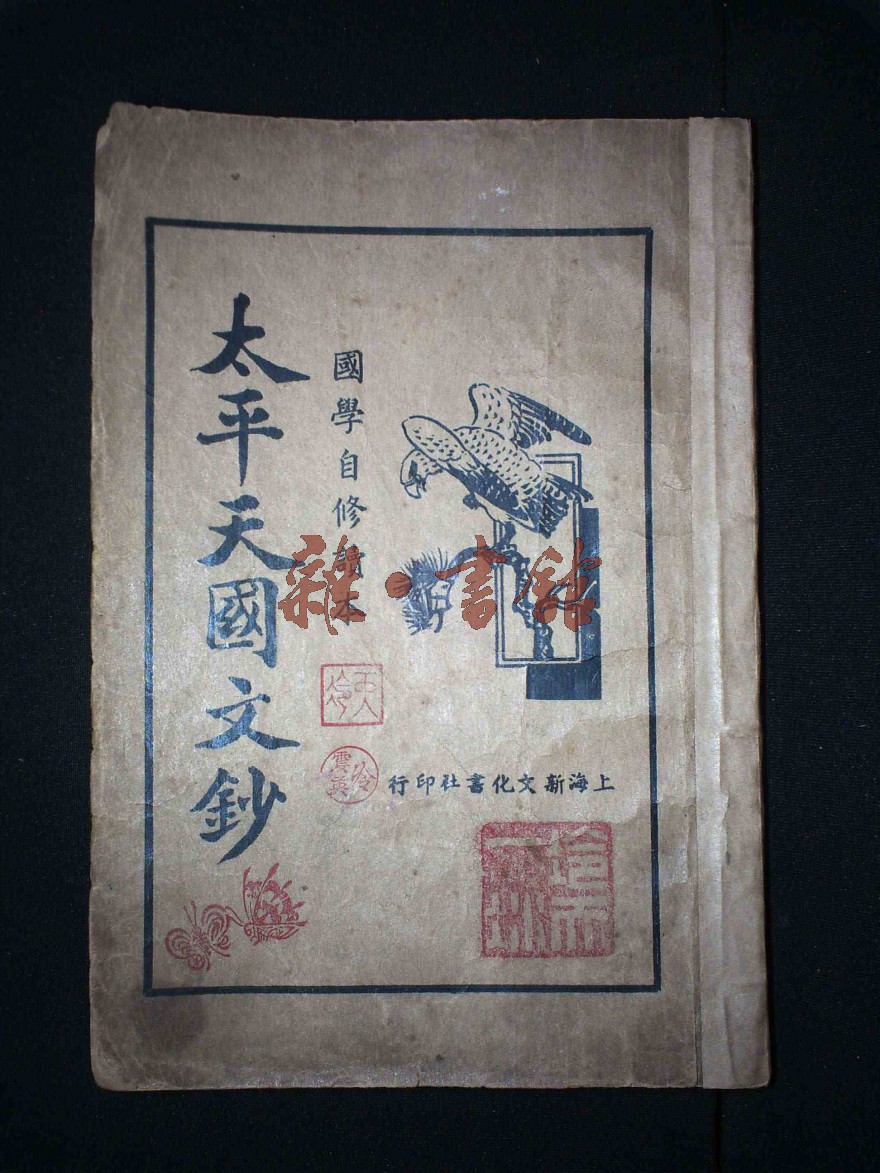 太平天國文鈔
國學自修讀本
上海新文化書社印行
雜·書館
冷雲英